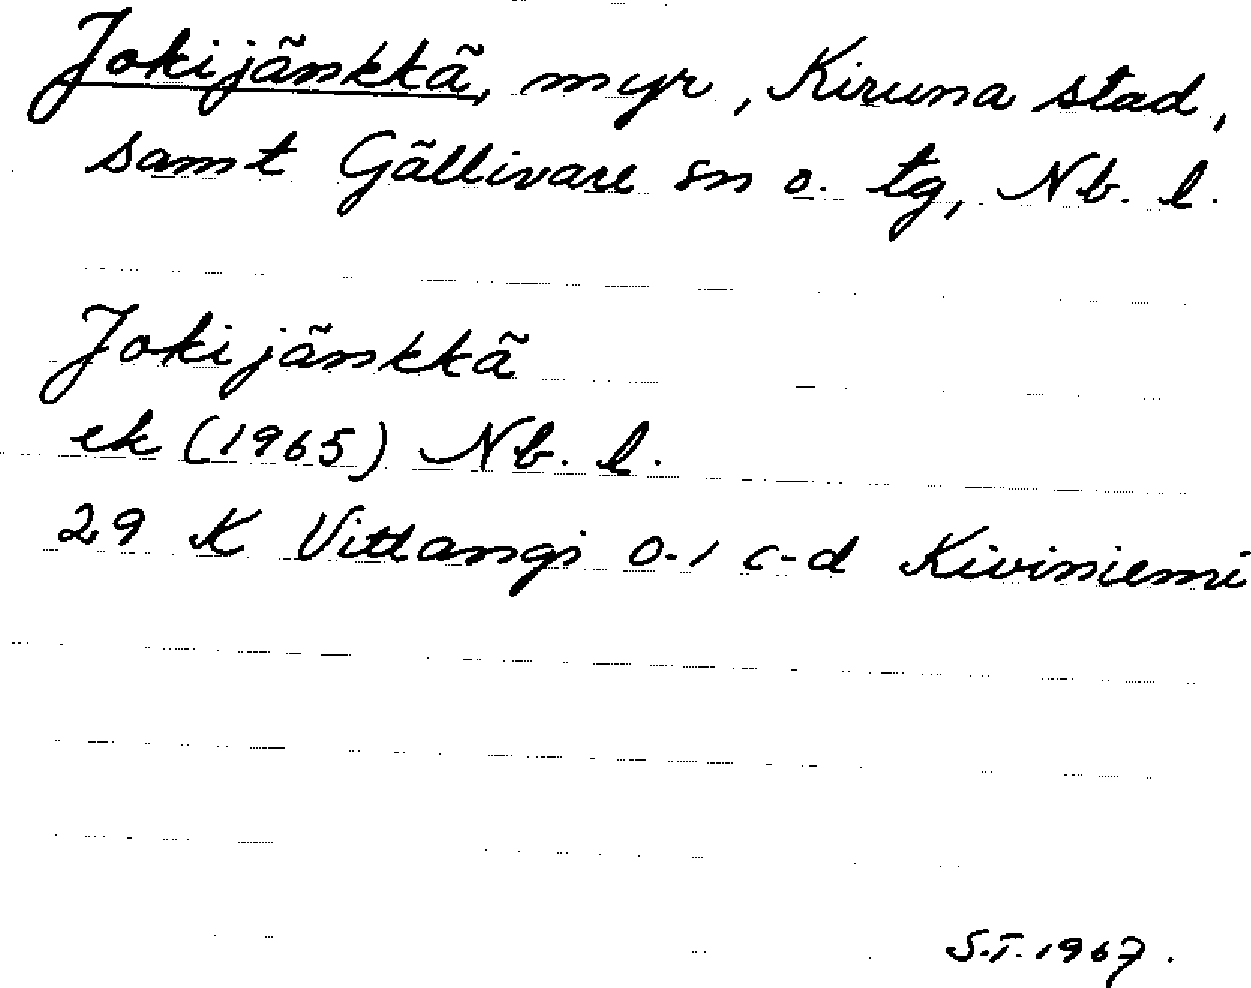 Jokijänkkä, myr, Kiruna stad,
samt Gällivare sn o. tg, Nb. l.
Jokijänkkä
ek (1965) Nb. l.
29 K Vittangi 0-1 c-d Kiviniemi
S.T. 1967.